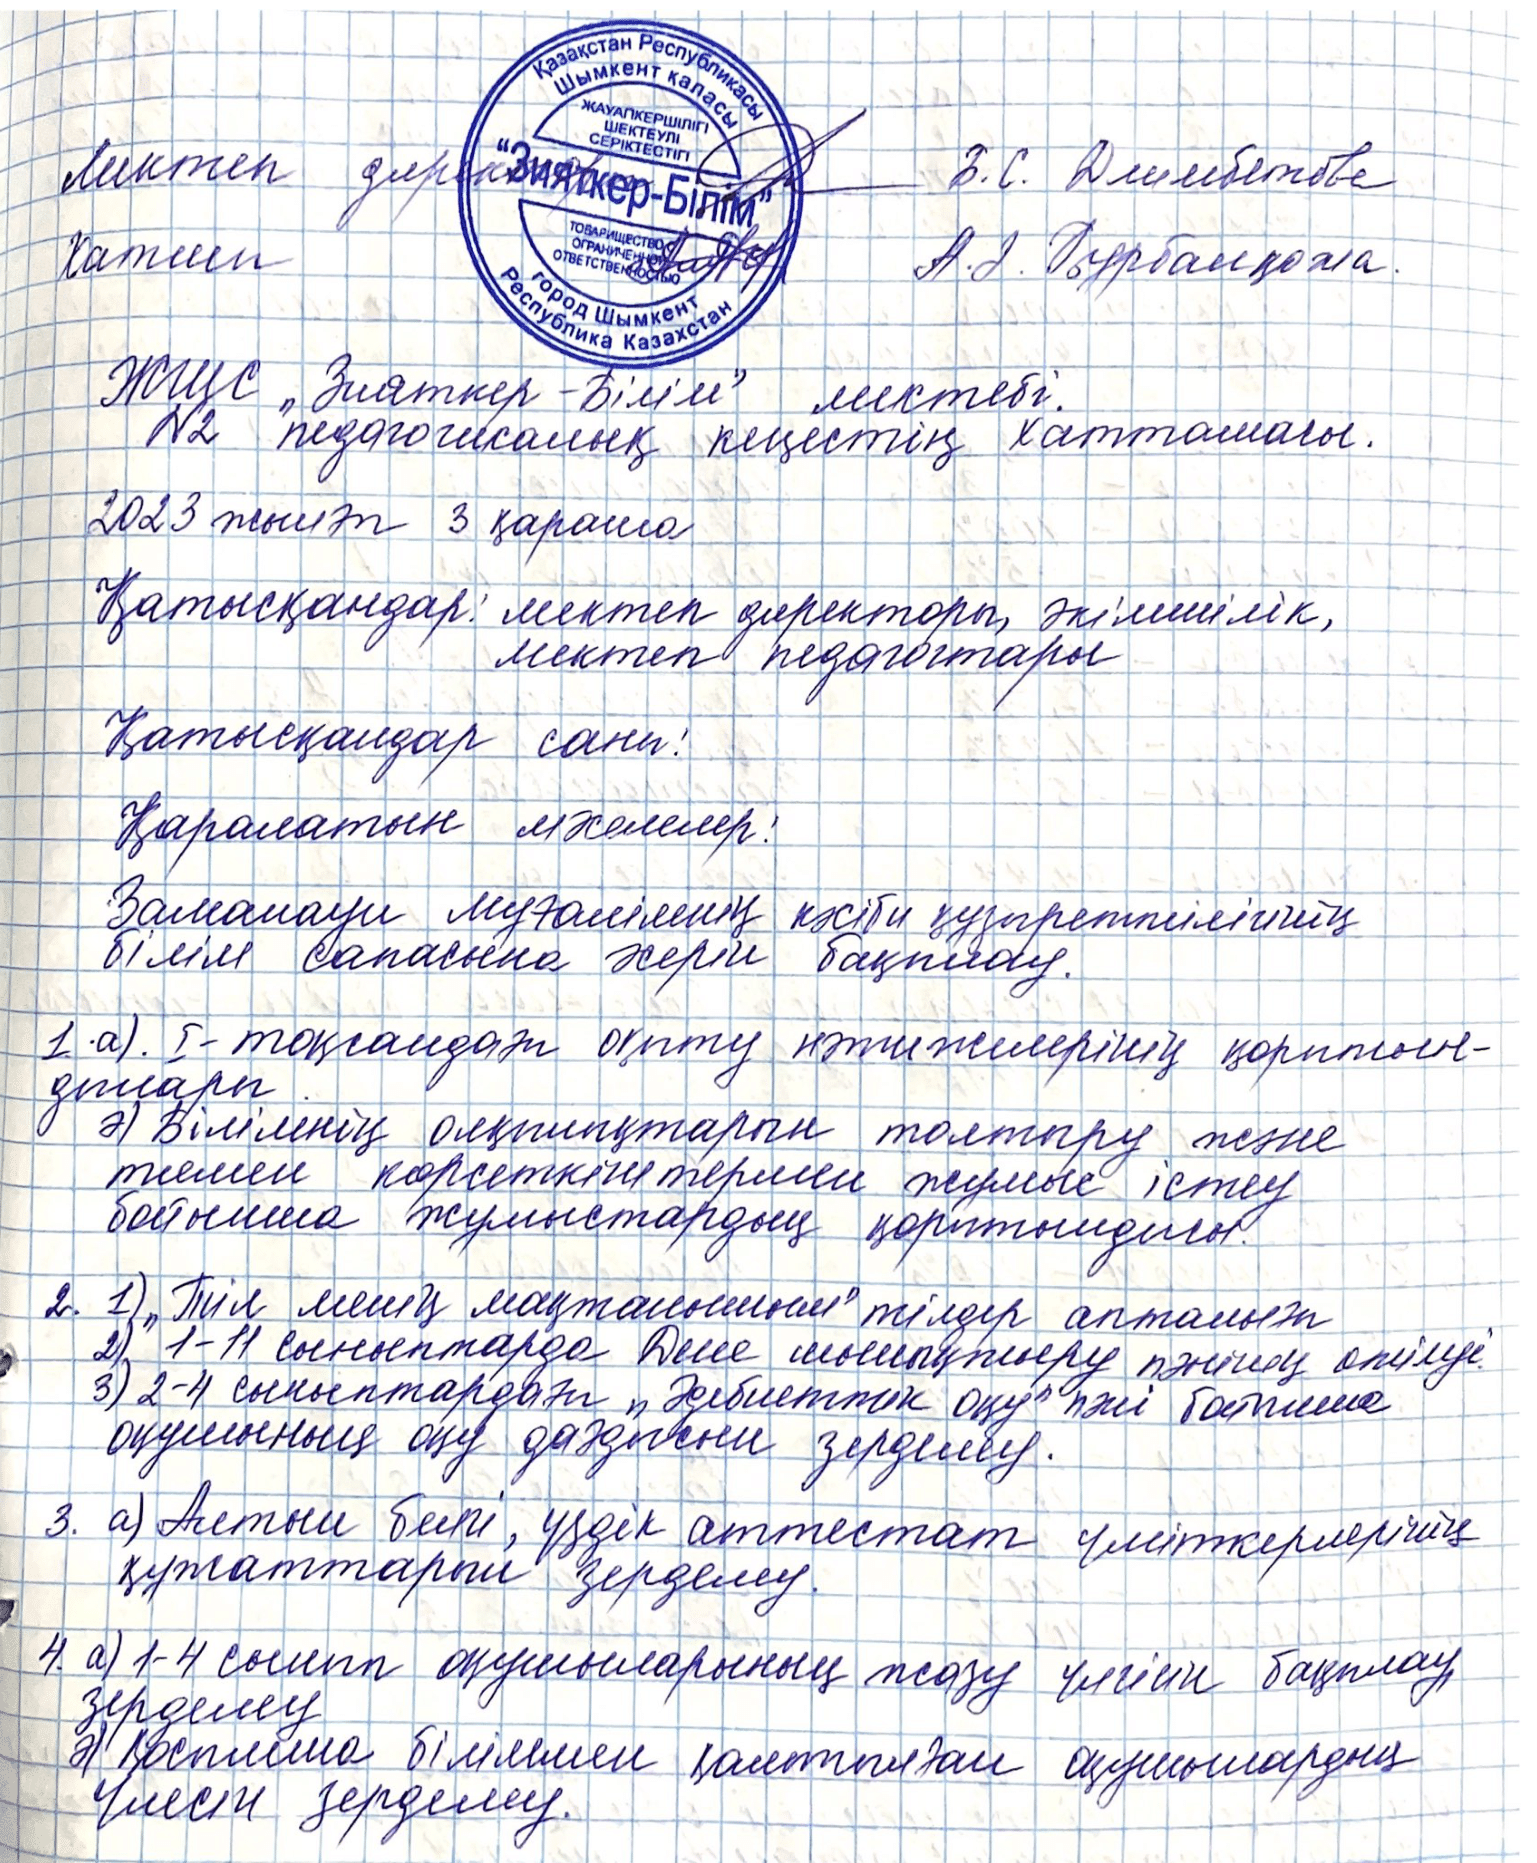 Қазақстан Республикасы
Шымкент қаласы
ЖАУАПКЕРШІЛІГІ
ШЕКТЕУЛІ
СЕРІКТЕСТІГІ
"Зияткер-Білім"
ТОВАРИЩЕСТВО С
ОГРАНИЧЕННОЙ
ОТВЕТСТВЕННОСТЬЮ
город Шымкент
Республика Казахстан
Мектеп директоры Б.С. Дүимбетова
Хатшы А.Ә. Құрбанқожа.
ЖШС „Зияткер-Білім" мектебі.
№2 педагогикалық кеңестің хаттамасы.
2023 жылғы 3 қараша
Қатысқандар: мектеп директоры, әкімшілік,
мектеп педагогтары
Қатысқандар саны:
Қаралатын мәселелер:
Заманауи мұғалімнің кәсіби құзыреттілігінің
білім сапасына әсерін бақылау.
1.а). I-тоқсандағы оқыту нәтижелерінің қорытын-
дылары
ә) Білімнің олқылықтарын толтыру және
төмен көрсеткіштермен жұмыс істеу
бойынша жұмыстардың қорытындысы.
2. 1) „Тіл менің мақтанышым" тілдер апталығы
2) 1-11 сыныптарда Дене шынықтыру пәнінің өтілуі.
3) 2-4 сыныптардағы „Әдебиеттік оқу" пәні бойынша
оқушының оқу дағдысын зерделеу.
3. а) Алтын белгі, үздік аттестат үміткерлерінің
құжаттарын зерделеу.
4. а) 1-4 сынып оқушыларының жазу үлгісін бақылау,
зерделеу
ә) Қосымша біліммен қамтылған оқушылардың
үлесін зерделеу.